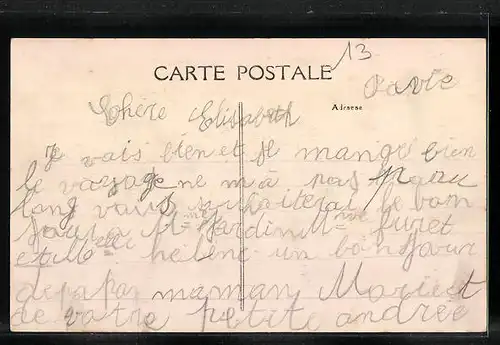 13
CARTE POSTALE
Pavie
Adresse
Chère Elisabeth
Je vais bien et je mange bien
le vayage ne m'a pas paru
long vous souhaiterai le bon
jour a Mme Jardin Mme Puret
et Mlle helene un bonjour
de papa maman Marie et
de votre petite andrée